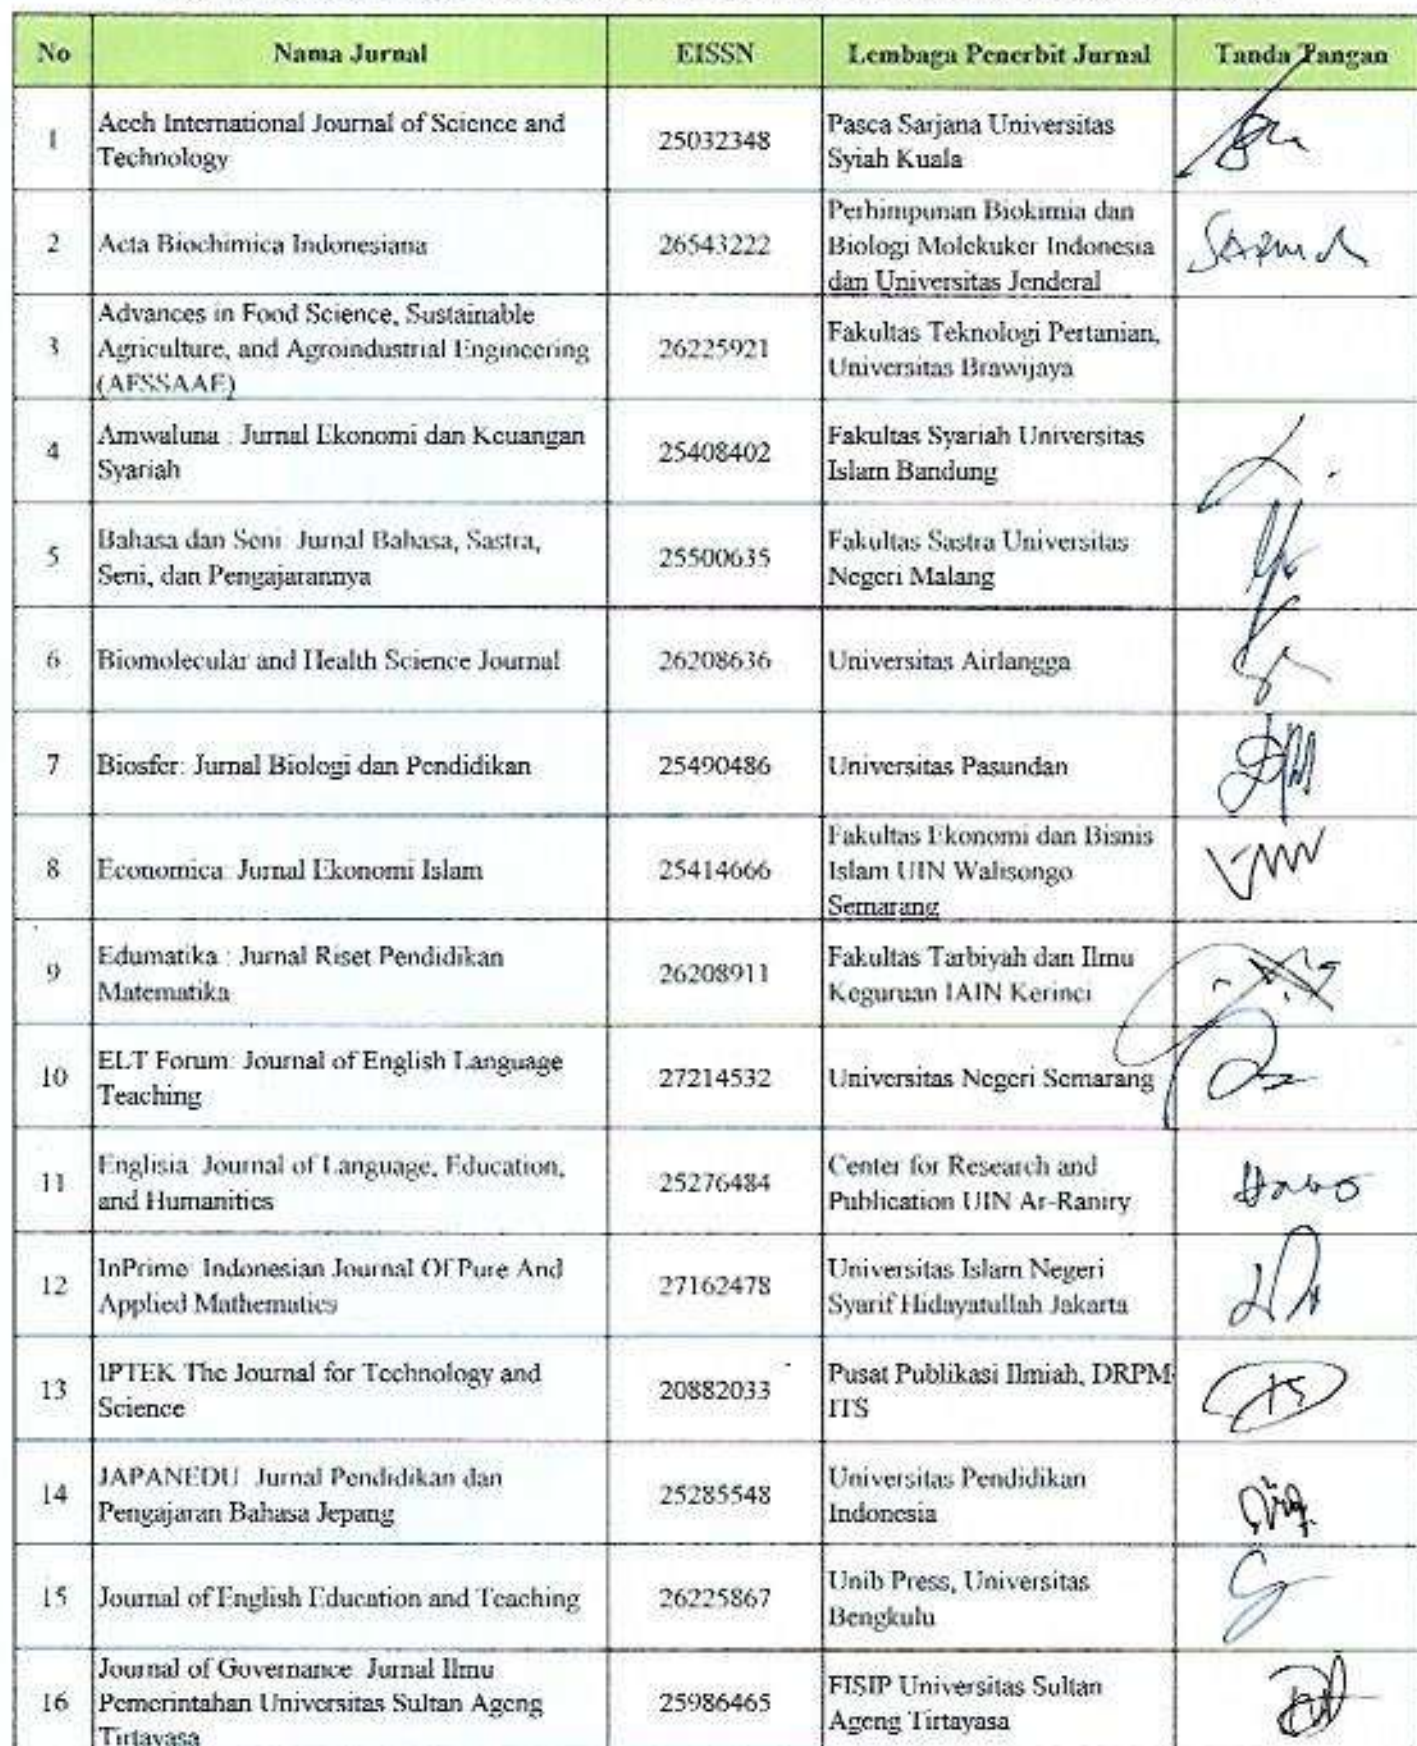 No Nama Jurnal EISSN Lembaga Penerbit Jurnal Tanda Tangan
1 Aceh International Journal of Science and
Technology
25032348
Pasca Sarjana Universitas
Syiah Kuala
2 Acta Biochimica Indonesiana
26543222
Perhimpunan Biokimia dan
Biologi Molekuker Indonesia
dan Universitas Jenderal
3 Advances in Food Science, Sustainable
Agriculture, and Agroindustrial Engineering
(AFSSAAE)
26225921
Fakultas Teknologi Pertanian,
Universitas Brawijaya
4 Amwaluna : Jurnal Ekonomi dan Keuangan
Syariah
25408402
Fakultas Syariah Universitas
Islam Bandung
5 Bahasa dan Seni: Jurnal Bahasa, Sastra,
Seni, dan Pengajarannya
25500635
Fakultas Sastra Universitas
Negeri Malang
6 Biomolecular and Health Science Journal
26208636
Universitas Airlangga
7 Biosfer: Jurnal Biologi dan Pendidikan
25490486
Universitas Pasundan
8 Economica: Jurnal Ekonomi Islam
25414666
Fakultas Ekonomi dan Bisnis
Islam UIN Walisongo
Semarang
9 Edumatika : Jurnal Riset Pendidikan
Matematika
26208911
Fakultas Tarbiyah dan Ilmu
Keguruan IAIN Kerinci
10 ELT Forum: Journal of English Language
Teaching
27214532
Universitas Negeri Semarang
11 Englisia: Journal of Language, Education,
and Humanities
25276484
Center for Research and
Publication UIN Ar-Raniry
12 InPrime: Indonesian Journal Of Pure And
Applied Mathematics
27162478
Universitas Islam Negeri
Syarif Hidayatullah Jakarta
13 IPTEK The Journal for Technology and
Science
20882033
Pusat Publikasi Ilmiah, DRPM-
ITS
14 JAPANEDU: Jurnal Pendidikan dan
Pengajaran Bahasa Jepang
25285548
Universitas Pendidikan
Indonesia
15 Journal of English Education and Teaching
26225867
Unib Press, Universitas
Bengkulu
16 Journal of Governance: Jurnal Ilmu
Pemerintahan Universitas Sultan Ageng
Tirtayasa
25986465
FISIP Universitas Sultan
Ageng Tirtayasa